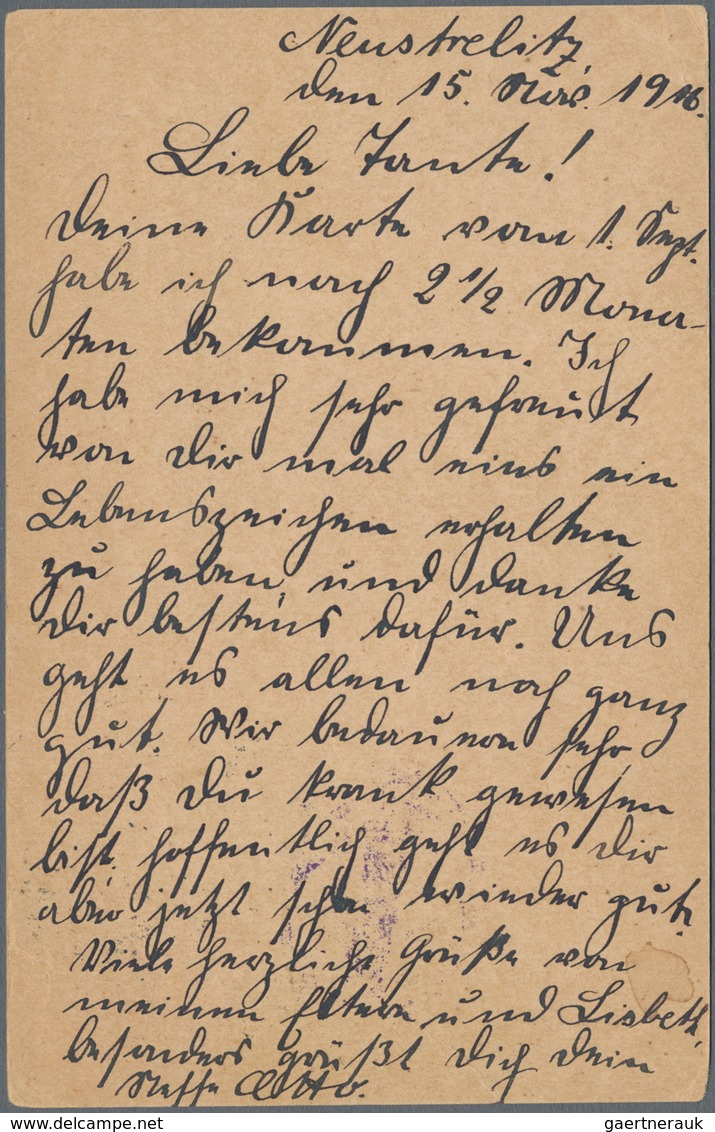 Neustrelitz,
den 15. Nov. 1916.
Liebe Tante!
Deine Karte vom 1. Sept.
habe ich nach 2 1/2 Mona-
ten bekommen. Ich
habe mich sehr gefreut
von Dir mal eins ein
Lebenszeichen erhalten
zu haben, und danke
Dir bestens dafür. Uns
geht es allen noch ganz
gut. Wir bedauern sehr
daß Du krank gewesen
bist. hoffentlich geht es Dir
aber jetzt schon wieder gut.
Viele herzliche Grüße von
meinen Eltern und Lisbeth,
besonders grüßt Dich Dein
Neffe Otto.
gaertnerauk